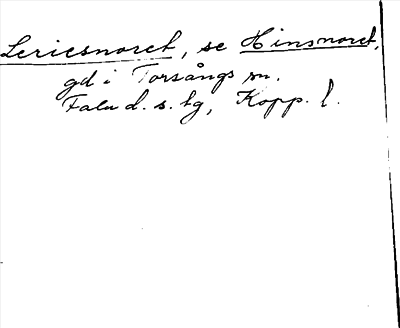 Lericsnoret, se Hinsnoret,
gd i Torsångs sn.
Falu d. s. tg, Kopp. l.